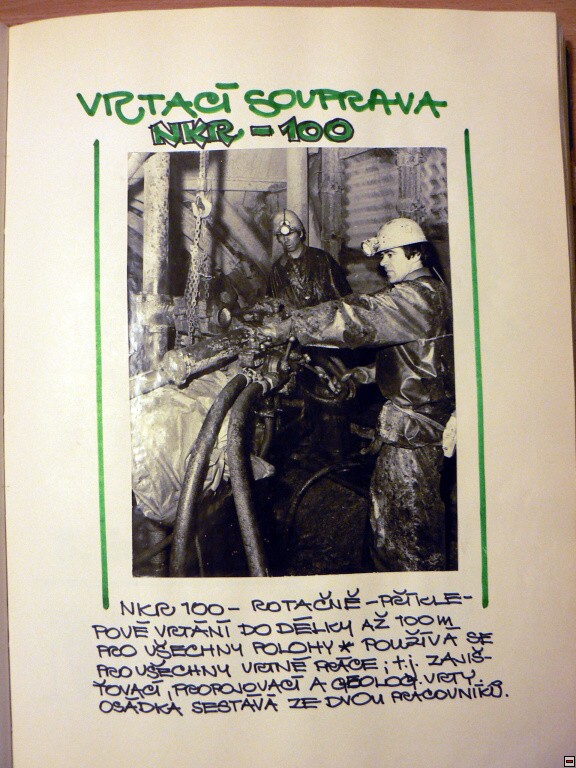 VRTACÍ SOUPRAVA
NKR - 100
NKR 100 - ROTAČNĚ - PŘÍKLE-
POVÉ VRTÁNÍ DO DÉLKY AŽ 100 m
PRO VŠECHNY POLOHY * POUŽÍVÁ SE
PRO VŠECHNY VRTNÉ PRÁCE, t.j. ZAJIŠ-
ŤOVACÍ, PROPOJOVACÍ A GEOLOG. VRTY.
OSÁDKA SESTÁVÁ ZE DVOU PRACOVNÍKŮ.